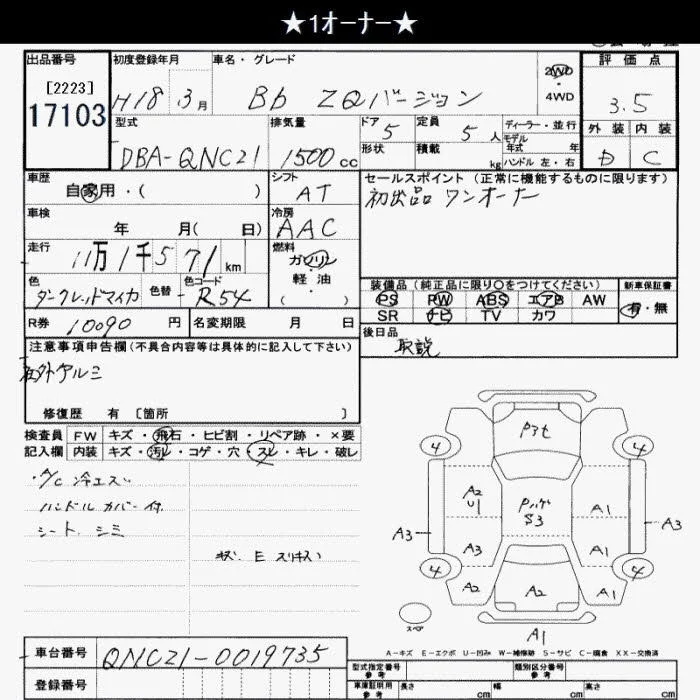 ★1オーナー★
出品番号
[2223]
17103
初度登録年月
H18 . 3月
車名・グレード
Bb ZQバージョン
2WD
・
4WD
評価点
3.5
外装 内装
D C
型式
DBA-QNC21
排気量
1500cc
ドア
5
定員
5人
形状
積載
kg
ディーラー・並行
モデル
年式 年
ハンドル 左・右
車歴
自家用・( )
シフト
AT
セールスポイント (正常に機能するものに限ります)
初出品 ワンオーナー
車検
年 月( 日)
冷房
AAC
走行
11万1千571km
燃料
ガソリン
・
軽油
( )
色
ダークレッドマイカ
色替
色コード
R54
装備品(純正品に限り○をつけてください)
PS PW ABS エアB AW
SR ナビ TV カワ
新車保証書
有・無
R券 10090 円
名変期限 月 日
後日品
取説
注意事項申告欄(不具合内容等は具体的に記入して下さい)
社外アルミ
修復歴 有 〔箇所 〕
検査員
記入欄
FW キズ・飛石・ヒビ割・リペア跡・×要
内装 キズ・汚レ・コゲ・穴・スレ・キレ・破レ
・A/C 冷エズ
ハンドル カバー付
シート シミ
キズ E スリキズ
P3t
4 4
A2
U1
Pハゲ
S3
A1
A3 A3
A3 A1
4 4
A2 A2 A1
スペア
A1
A-キズ E-エクボ U-凹み W-補修跡 S-サビ C-腐食 XX-交換済
車台番号
QNC21-0019735
登録番号
型式指定番号
参考
類別区分番号
参考
車庫証明用
参考
長さ cm 幅 cm 高さ cm